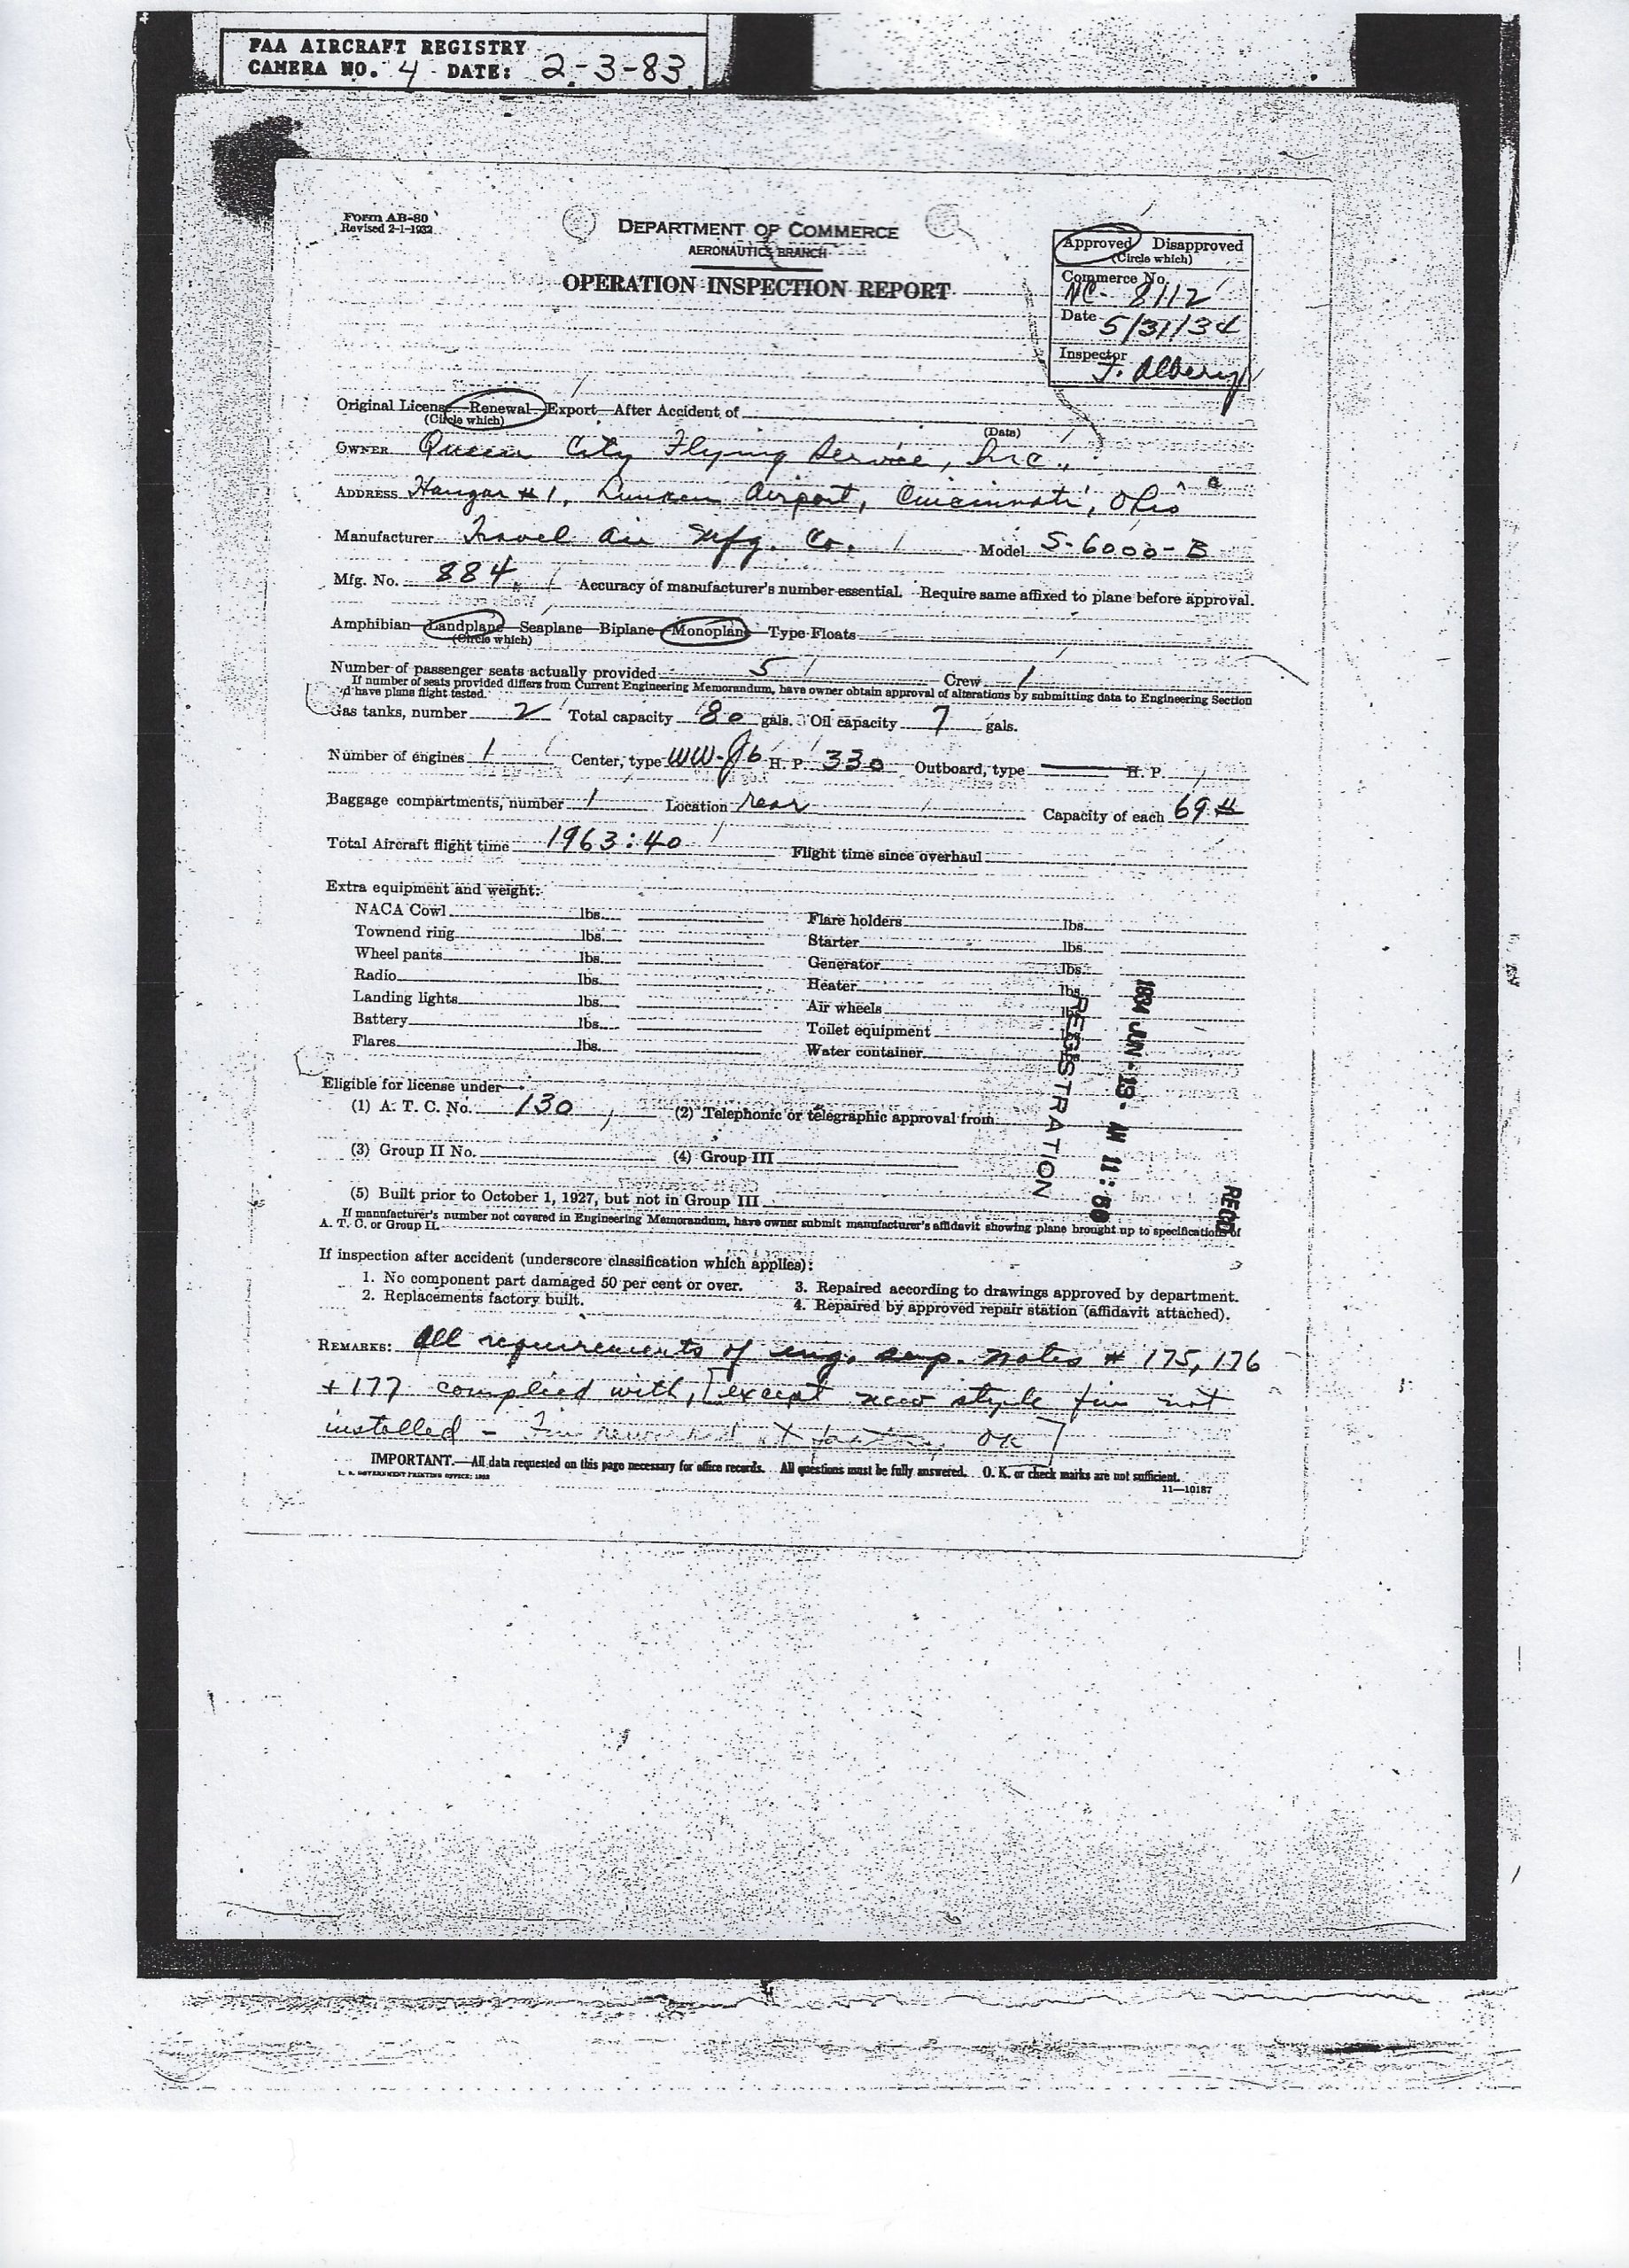 FAA AIRCRAFT REGISTRY
CAMERA NO. 4 DATE: 2-3-83
Form AB-80
Revised 2-1-1932
DEPARTMENT OF COMMERCE
AERONAUTICS BRANCH
OPERATION INSPECTION REPORT
Approved Disapproved
(Circle which)
Commerce No.
NC- 8112
Date 5/31/34
Inspector
Original License—Renewal—Export—After Accident of
(Circle which) (Date)
OWNER Queen City Flying Service, Inc.,
ADDRESS Hangar #1, Lunken Airport, Cincinnati, Ohio
Manufacturer Travel Air Mfg. Co. Model S-6000-B
Mfg. No. 884 Accuracy of manufacturer's number essential. Require same affixed to plane before approval.
Amphibian—Landplane—Seaplane—Biplane—Monoplane—Type Floats
(Circle which)
Number of passenger seats actually provided 5 Crew 1
If number of seats provided differs from Current Engineering Memorandum, have owner obtain approval of alterations by submitting data to Engineering Section
d have plane flight tested.
Gas tanks, number 2 Total capacity 80 gals. Oil capacity 7 gals.
Number of engines 1 Center, type WW-J6 H. P. 330 Outboard, type — H. P.
Baggage compartments, number 1 Location rear Capacity of each 69 #
Total Aircraft flight time 1963:40 Flight time since overhaul
Extra equipment and weight:
NACA Cowl lbs. Flare holders lbs.
Townend ring lbs. Starter lbs.
Wheel pants lbs. Generator lbs.
Radio lbs. Heater lbs.
Landing lights lbs. Air wheels lbs.
Battery lbs. Toilet equipment
Flares lbs. Water container lbs.
REGISTRATION
1934 JUN 13 AM 11:
REC'D
Eligible for license under—
(1) A. T. C. No. 130 (2) Telephonic or telegraphic approval from
(3) Group II No. (4) Group III
(5) Built prior to October 1, 1927, but not in Group III
If manufacturer's number not covered in Engineering Memorandum, have owner submit manufacturer's affidavit showing plane brought up to specifications of
A. T. C. or Group II.
If inspection after accident (underscore classification which applies):
1. No component part damaged 50 per cent or over. 3. Repaired according to drawings approved by department.
2. Replacements factory built. 4. Repaired by approved repair station (affidavit attached).
REMARKS: All requirements of eng. insp. notes # 175, 176
+ 177 complied with, [except new style fin not
installed - Fin reworked at factory OK]
IMPORTANT.—All data requested on this page necessary for office records. All questions must be fully answered. O. K. or check marks are not sufficient.
U. S. GOVERNMENT PRINTING OFFICE: 1932
11—10187